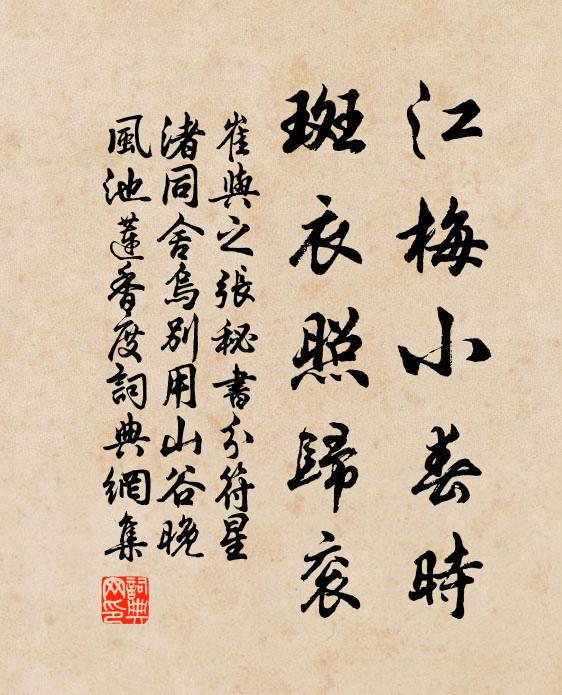 江梅小春時
斑衣照歸衮
崔與之張秘書分符星
渚同舍鳥別用山谷晚
風池蓮香度詞典網集
詞典網印